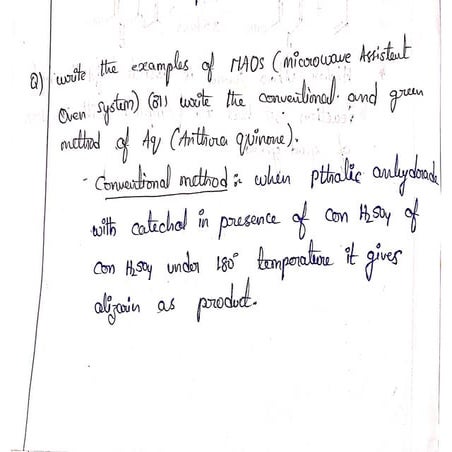 Q) write the examples of MAOS (microwave Assistent
Oven system) (81) write the conventional. and green
method of Aq (Anthora quinone).
- Conventional method :- when pthalic anhydorade
with catechol in presence of con H2SO4 of
con H2SO4 under 180° temperature it gives
alizarin as product.